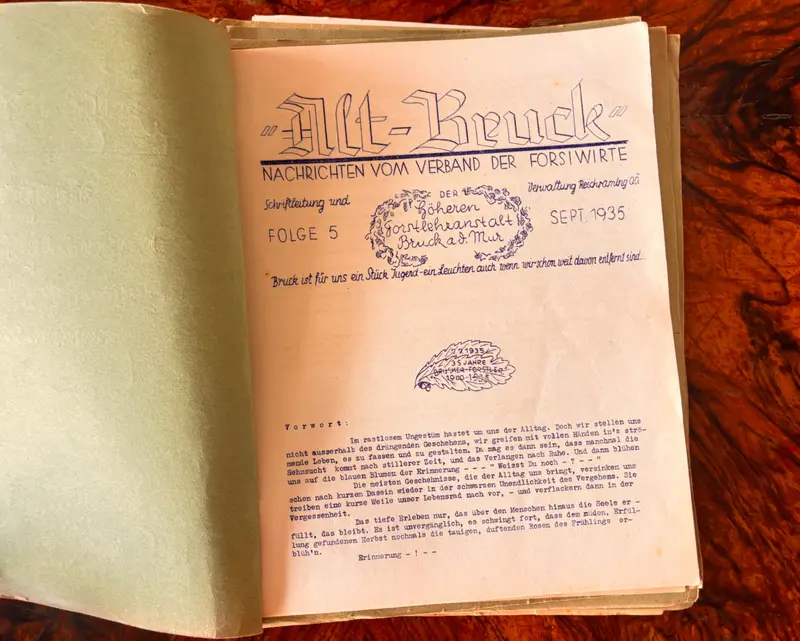 "Alt-Bruck"
NACHRICHTEN VOM VERBAND DER FORSTWIRTE
Schriftleitung und
DER
Verwaltung Reichraming OÖ.
FOLGE 5
Höheren
Forstlehranstalt
Bruck a.d. Mur
SEPT. 1935
"Bruck ist für uns ein Stück Jugend-ein Leuchten auch wenn wir schon weit davon entfernt sind...
1935
35 JAHRE
BRUCKER FÖRSTLER
1900-1935
Vorwort:
Im rastlosem Ungestüm hastet um uns der Alltag. Doch wir stellen uns
nicht ausserhalb des drängenden Geschehens, wir greifen mit vollen Händen in's strö-
mende Leben, es zu fassen und zu gestalten. Da mag es dann sein, dass manchmal die
Sehnsucht kommt nach stillerer Zeit, und das Verlangen nach Ruhe. Und dann blühen
uns auf die blauen Blumen der Erinnerung - - - "Weisst Du noch - ? - -"
Die meisten Geschehnisse, die der Alltag uns bringt, versinken uns
schon nach kurzem Dasein wieder in der schwarzen Unendlichkeit des Vergehens. Sie
treiben eine kurze Weile unser Lebensrad nach vor, - und verflackern dann in der
Vergessenheit.
Das tiefe Erleben nur, das über den Menschen hinaus die Seele er -
füllt, das bleibt. Es ist unvergänglich, es schwingt fort, dass dem müden, Erfül-
lung gefundenen Herbst nochmals die tauigen, duftenden Rosen des Frühlings er-
blüh'n.
Erinnerung - ! - -